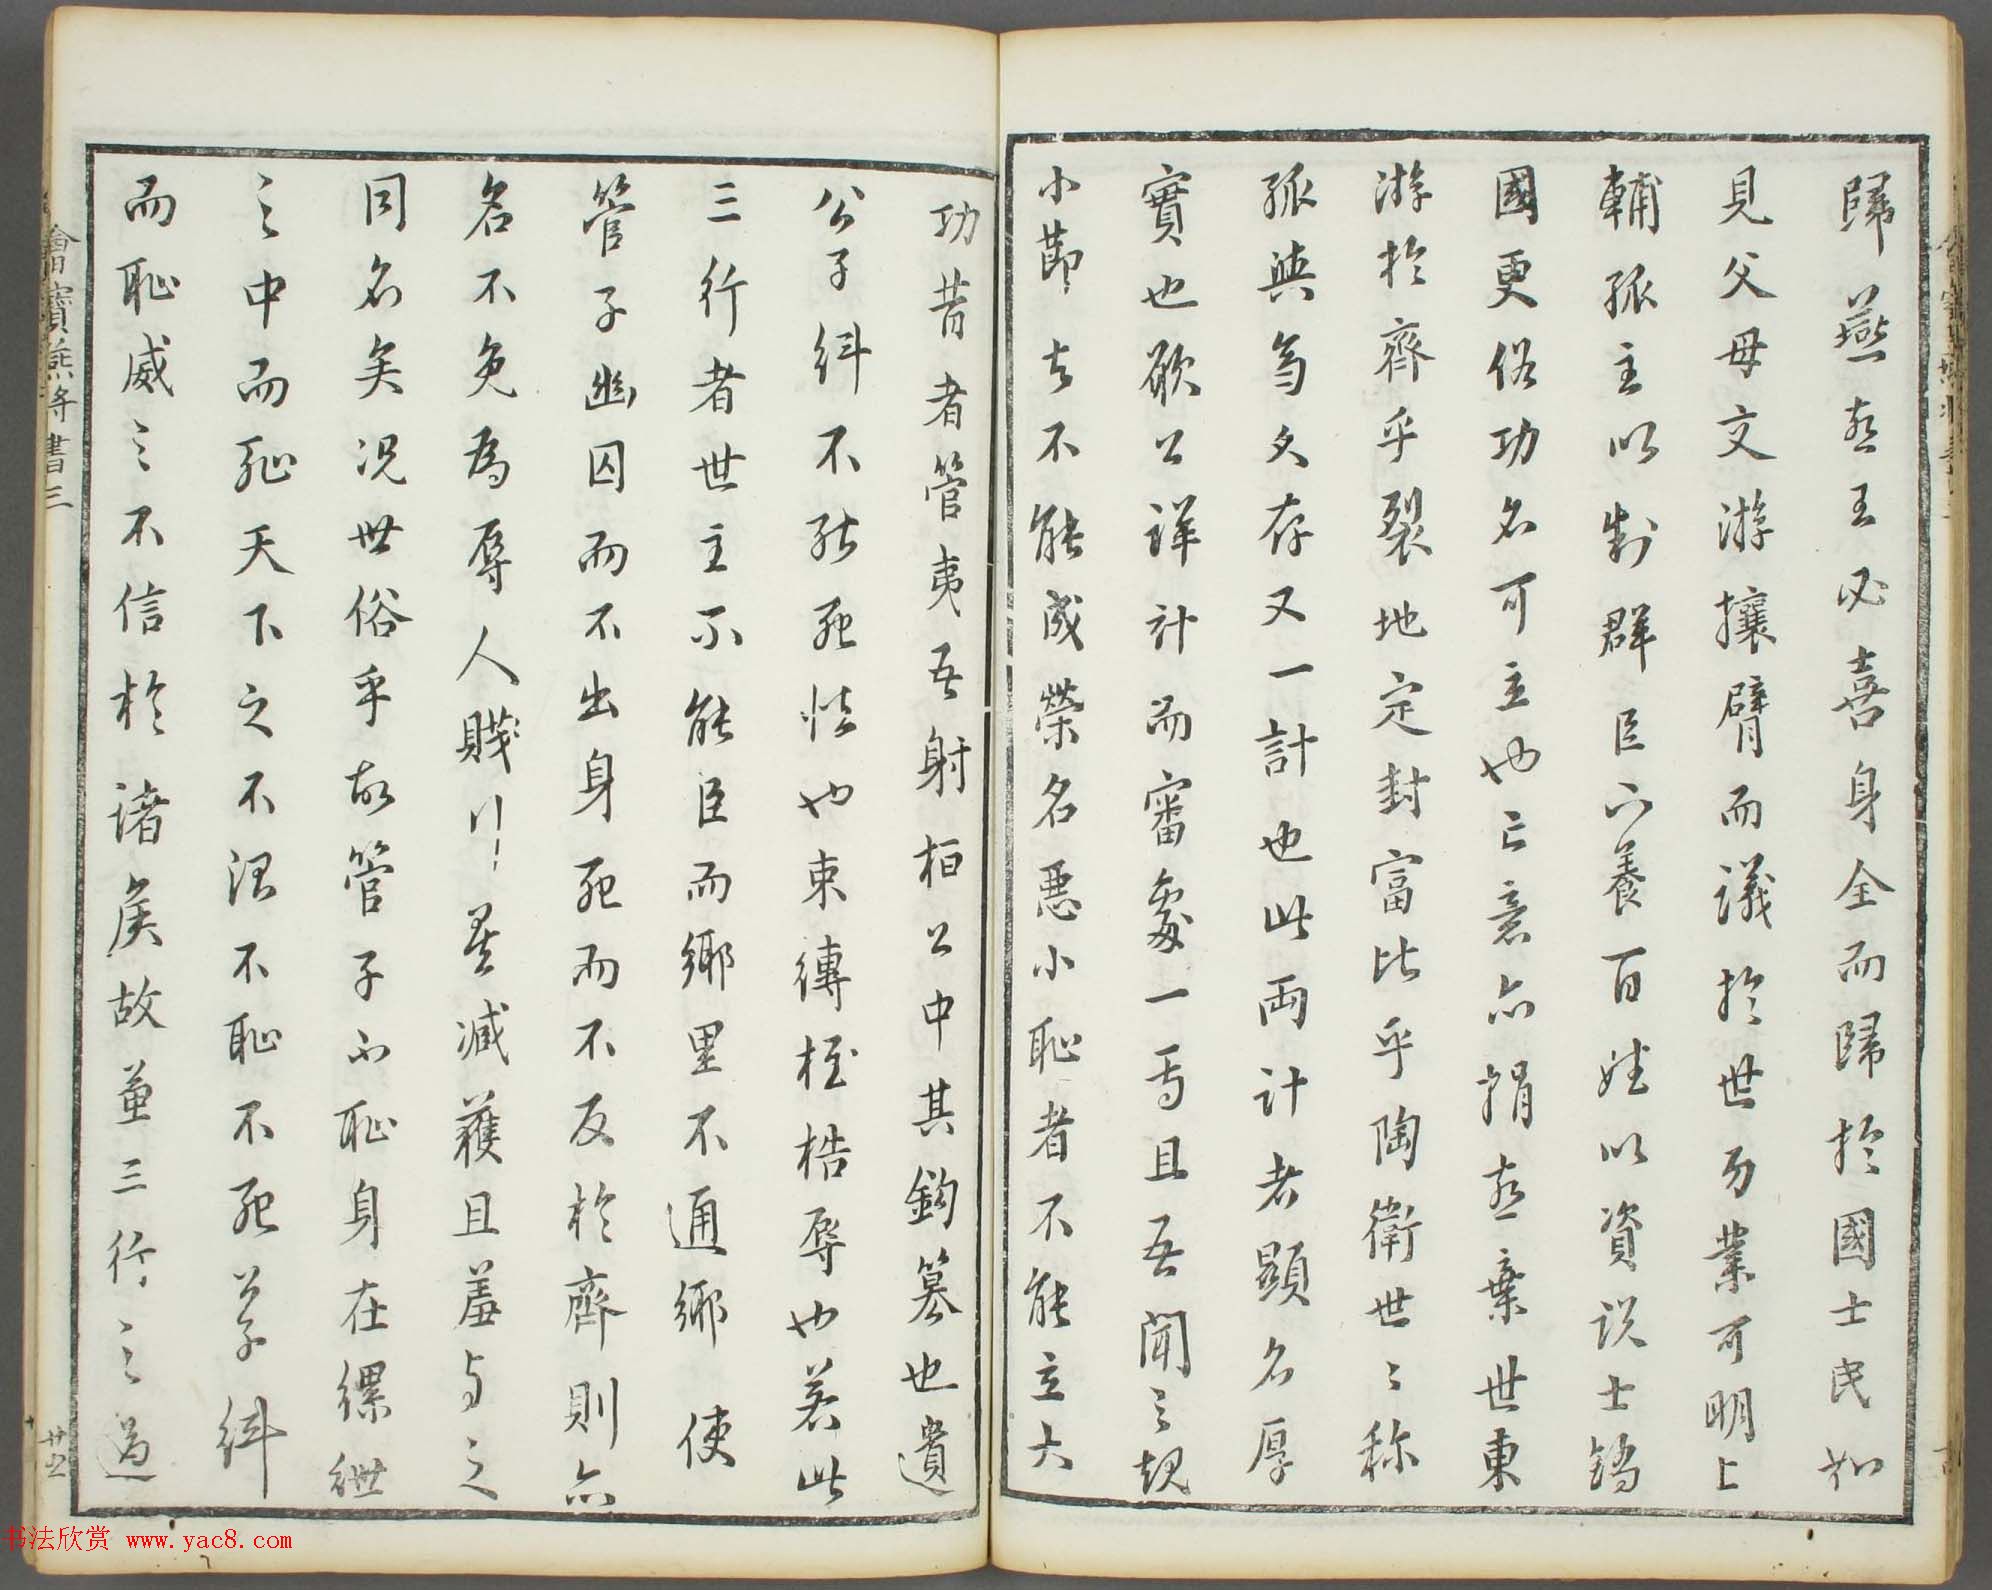 歸燕燕王必喜身全而歸於國士民如
見父母交游攘臂而議於世功業可明上
輔孤主以制群臣下養百姓以資説士矯
國更俗功名可立也亡意亦捐燕棄世東
游於齊乎裂地定封富比乎陶衛世〻称
孤與齊久存又一計也此両計者顯名厚
實也欲公詳計而審處一焉且吾聞之規
小節者不能成榮名惡小恥者不能立大
功昔者管夷吾射桓公中其鈎篡也遺
公子糾不能死怯也束縛桎梏辱也若此
三行者世主不能臣而鄉里不通鄉使
管子幽囚而不出身死而不反於齊則亦
名不免為辱人賤行矣臧獲且羞與之
同名矣況世俗乎故管子不恥身在縲紲
之中而恥天下之不治不恥不死公子糾
而恥威之不信於諸侯故兼三行之過
會寶燕將書三
廿五
书法欣赏 www.yac8.com